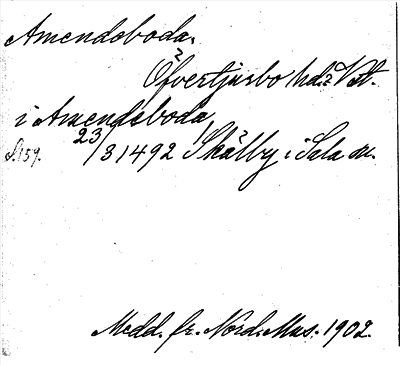 Amendsboda.
Öfvertjurbo hd. Vstl.
i Amendsboda,
S. 159. 23/3 1492 Skälby i Sala sn.
Medd. fr. Nord. Mus. 1902.